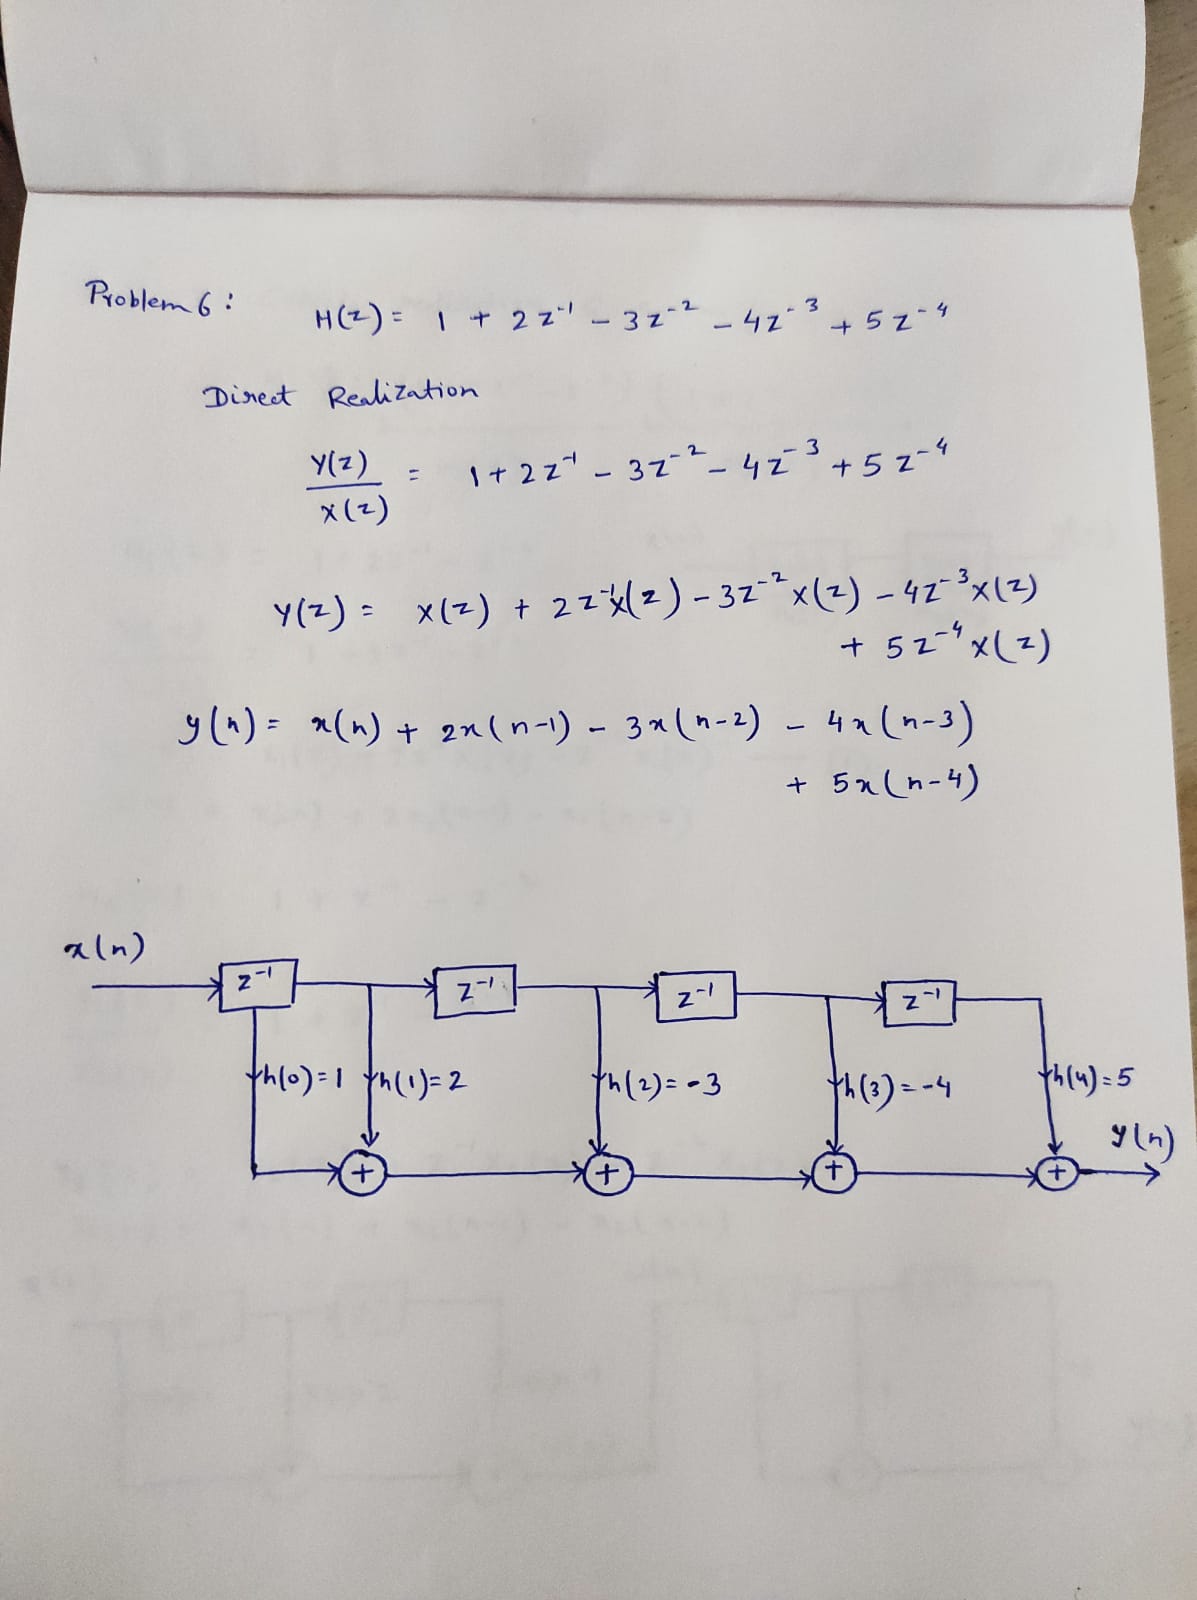 Problem 6:
H(z) = 1 + 2z⁻¹ - 3z⁻² - 4z⁻³ + 5z⁻⁴
Direct Realization
Y(z)
X(z)
= 1 + 2z⁻¹ - 3z⁻² - 4z⁻³ + 5z⁻⁴
Y(z) = X(z) + 2z⁻¹X(z) - 3z⁻²X(z) - 4z⁻³X(z)
+ 5z⁻⁴X(z)
y(n) = x(n) + 2x(n-1) - 3x(n-2) - 4x(n-3)
+ 5x(n-4)
x(n)
z⁻¹ z⁻¹ z⁻¹ z⁻¹
h(0)=1 h(1)=2 h(2)=-3 h(3)=-4 h(4)=5
y(n)
+ + + +